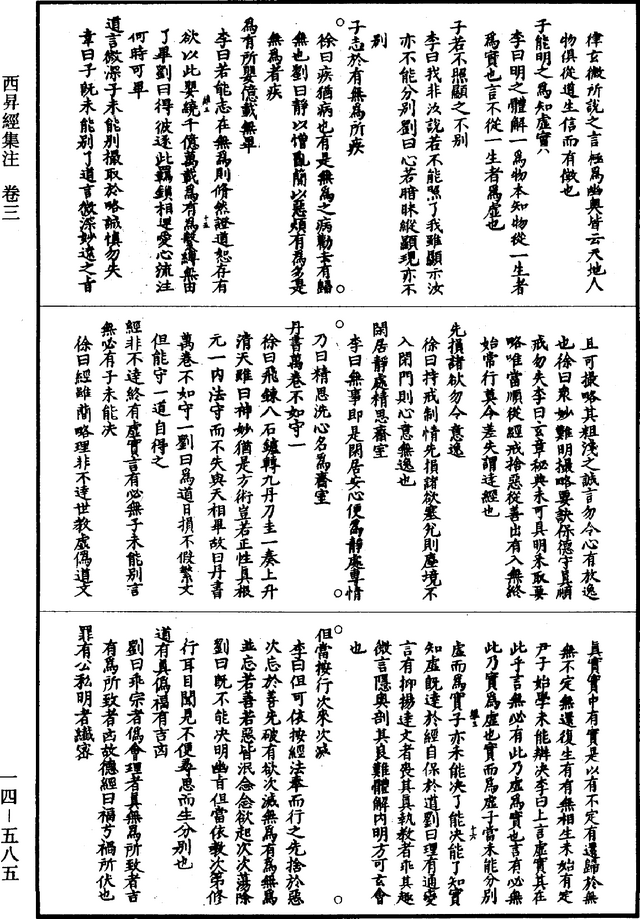 西昇經集注 卷三
律玄微所說之言極為幽奧皆云天地人
物俱從道生信而有徵也
子能明之為知虛實
李曰明之體解一為物本知物從一生者
為實也言不從一生者為虛也
子若不照顯之不別
李曰我非汝說若不能照了我雖顯示汝
亦不能分別劉曰心若暗昧縱顯現亦不
別
子志於有無為所疾
徐曰疾猶病也有是無為之病動士有歸
無也劉曰靜以憎亂簡以惡煩有為多是
無為者疾
為有所嬰億載無畢
李曰若能志在無為則脩然證道恕存有
欲以此嬰繞千億萬載為有為繫縛無由
了畢劉曰得彼逐此羈鎖相還愛心流注
何時可畢
道言微深子未能別撮取於略誡慎勿失
章曰子既未能别了道言微深妙遠之旨
且可撮略其粗淺之誡言勿令心有放逸
也徐曰眾妙難明撮略要訣保德守真頭
戒勿失李曰玄章秘典未可具明采取要
略唯當順從經戒捨惡從善出有入無終
始常行莫令差失謂達經也
先損諸欲勿令意逸
徐曰持戒制情先損諸欲塞兌則塵境不
入閉門則心意無逸也
閑居靜處精思齋室
李曰無事即是閑居安心便為靜處專情
乃曰精思洗心名為齋室
丹書萬卷不如守一
徐曰飛鍊八石鑪轉九丹刀圭一奏上升
清天雖曰神妙猶是方術豈若正性真根
元一內法守而不失與天相畢故曰丹書
萬卷不如守一劉曰為道日損不假繁文
但能守一道自得之
經非不達終有虛實言有必無子未能別言
無必有子未能決
徐曰經雖簡略理非不達世教虛偽道文
真實實中有實是以有不定有還歸於無
無不定無還復生有有無相生未始有定
尹子始學未能辯決李曰上言虛實其在
此乎言無必有此乃虛為實也言有必無
此乃實為虛也實而為虛子當未能分別
虛而為實子亦未能決了能決能了知實
知虛既達於經自保於道劉曰理有通變
言有抑揚達文者喪其真執教者乖其趣
微言隱奧剖其良難體解內明方可玄會
也
但當按行次來次滅
李曰但可依按經法奉而行之先捨於惡
次忘於善先破有欲次滅無為有為無為
並忘若善若惡皆泯念念欲起次次蕩除
劉曰既不能決明幽旨但當依教次第修
行耳目聞見不便尋思而生分別也
道有真偽福有吉凶
劉曰乖宗者偽會理者真無為所致者吉
有為所致者凶故德經曰福兮禍所伏也
罪有公私明者纖密
一四－五八五